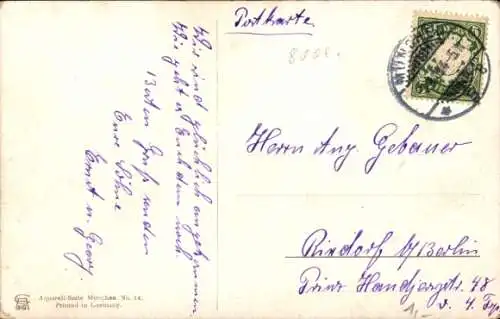 Postkarte
Wir sind glücklich angekommen
Wie geht es Euch denn noch.
Besten Gruß senden
Eure Söhne
Ernst u. Georg.
Herrn Aug. Gebauer
Rixdorf b/Berlin
Prinz Handjerystr. 48
v. 4. Trp
1,-
Aquarell-Karte München No.
Printed in Germany.